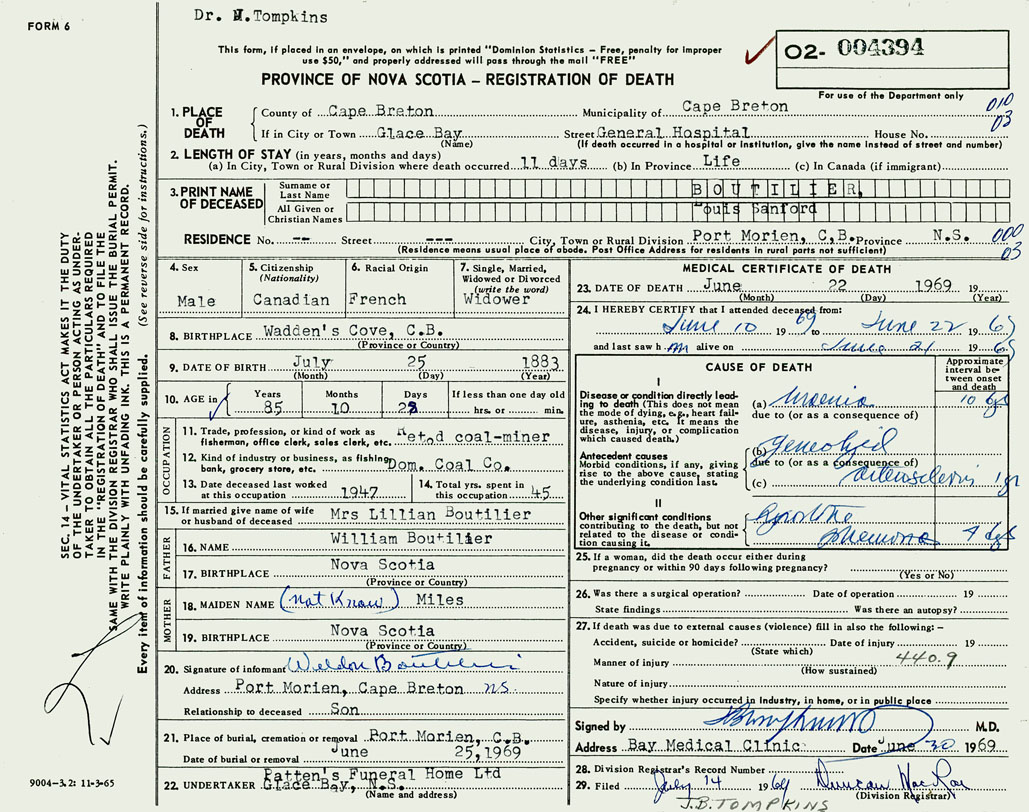 FORM 6
Dr. M. Tompkins
This form, if placed in an envelope, on which is printed "Dominion Statistics – Free, penalty for improper
use $50," and properly addressed will pass through the mail "FREE"
PROVINCE OF NOVA SCOTIA – REGISTRATION OF DEATH
O2- 004394
For use of the Department only
1. PLACE OF DEATH County of Cape Breton Municipality of Cape Breton 010
If in City or Town Glace Bay Street General Hospital House No. 03
(Name) (If death occurred in a hospital or institution, give the name instead of street and number)
2. LENGTH OF STAY (in years, months and days)
(a) In City, Town or Rural Division where death occurred 11 days (b) In Province Life (c) In Canada (if immigrant)
3. PRINT NAME OF DECEASED
Surname or Last Name BOUTILIER,
All Given or Christian Names Louis Sanford
RESIDENCE No. -- Street --- City, Town or Rural Division Port Morien, C.B. Province N.S. 000
(Residence means usual place of abode. Post Office Address for residents in rural parts not sufficient) 03
4. Sex Male
5. Citizenship (Nationality) Canadian
6. Racial Origin French
7. Single, Married, Widowed or Divorced (write the word) Widower
8. BIRTHPLACE Wadden's Cove, C.B.
(Province or Country)
9. DATE OF BIRTH July 25 1883
(Month) (Day) (Year)
10. AGE in Years Months Days If less than one day old
85 10 28 hrs. or min.
OCCUPATION
11. Trade, profession, or kind of work as fisherman, office clerk, sales clerk, etc. Retod coal-miner
12. Kind of industry or business, as fishing, bank, grocery store, etc. Dom. Coal Co.
13. Date deceased last worked at this occupation 1947
14. Total yrs. spent in this occupation 45
15. If married give name of wife or husband of deceased Mrs Lillian Boutilier
FATHER
16. NAME William Boutilier
17. BIRTHPLACE Nova Scotia
(Province or Country)
MOTHER
18. MAIDEN NAME (not Know) Miles
19. BIRTHPLACE Nova Scotia
(Province or Country)
20. Signature of informant Weldon Boutilier
Address Port Morien, Cape Breton NS
Relationship to deceased Son
21. Place of burial, cremation or removal Port Morien, C.B.
Date of burial or removal June 25,1969
22. UNDERTAKER Patten's Funeral Home Ltd
Glace Bay, N.S.
(Name and address)
MEDICAL CERTIFICATE OF DEATH
23. DATE OF DEATH June 22 1969 19
(Month) (Day) (Year)
24. I HEREBY CERTIFY that I attended deceased from:
June 10 1969 to June 22 1969
and last saw him alive on June 21 1969
CAUSE OF DEATH
Approximate interval between onset and death
I
Disease or condition directly leading to death (This does not mean the mode of dying, e.g., heart failure, asthenia, etc. It means the disease, injury, or complication which caused death.)
(a) Uraemia 10 dys
due to (or as a consequence of)
Antecedent causes
Morbid conditions, if any, giving rise to the above cause, stating the underlying condition last.
(b)
due to (or as a consequence of)
(c) arteriosclerosis 1 yr
II
Other significant conditions contributing to the death, but not related to the disease or condition causing it.
Hypostatic
pneumonia 4 dys
25. If a woman, did the death occur either during pregnancy or within 90 days following pregnancy?
(Yes or No)
26. Was there a surgical operation? Date of operation 19
State findings Was there an autopsy?
27. If death was due to external causes (violence) fill in also the following: –
Accident, suicide or homicide? Date of injury 19
(State which)
Manner of injury 440.9
(How sustained)
Nature of injury
Specify whether injury occurred in industry, in home, or in public place
Signed by M.D.
Address Bay Medical Clinic Date June 30 1969
28. Division Registrar's Record Number
29. Filed July 14 1969 Duncan MacRae
(Division Registrar)
J.B. TOMPKINS
SEC. 14 – VITAL STATISTICS ACT MAKES IT THE DUTY
OF THE UNDERTAKER OR PERSON ACTING AS UNDER-
TAKER TO OBTAIN ALL THE PARTICULARS REQUIRED
IN THE "REGISTRATION OF DEATH" AND TO FILE THE
SAME WITH THE DIVISION REGISTRAR WHO SHALL ISSUE THE BURIAL PERMIT.
WRITE PLAINLY WITH UNFADING INK. THIS IS A PERMANENT RECORD.
Every item of information should be carefully supplied. (See reverse side for instructions.)
9004–3.2: 11-3-65